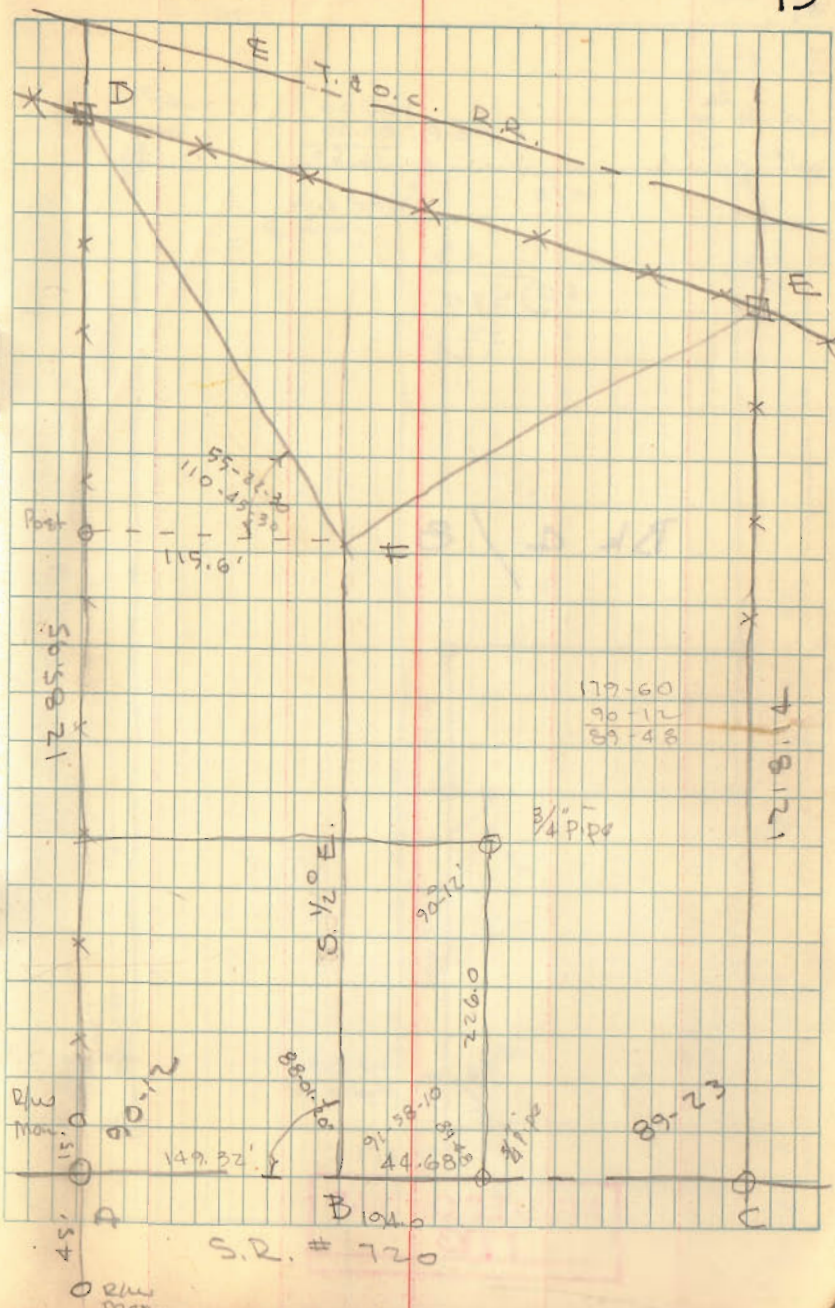 ℄ T. & O.C. R.R.
D
E
55-22-30
110-45-30
Post
115.6'
H
1285.95
179-60
90-12
89-48
1218.14
3/4" pipe
S. 1/2° E.
90-12'
226.0
R/W
Mon.
15'
90-12
88-01-
91-58-10
89-48
3/4 Pipe
89-23
149.32'
44.68
A
B
194.0
C
45'
S.R. # 720
R/W